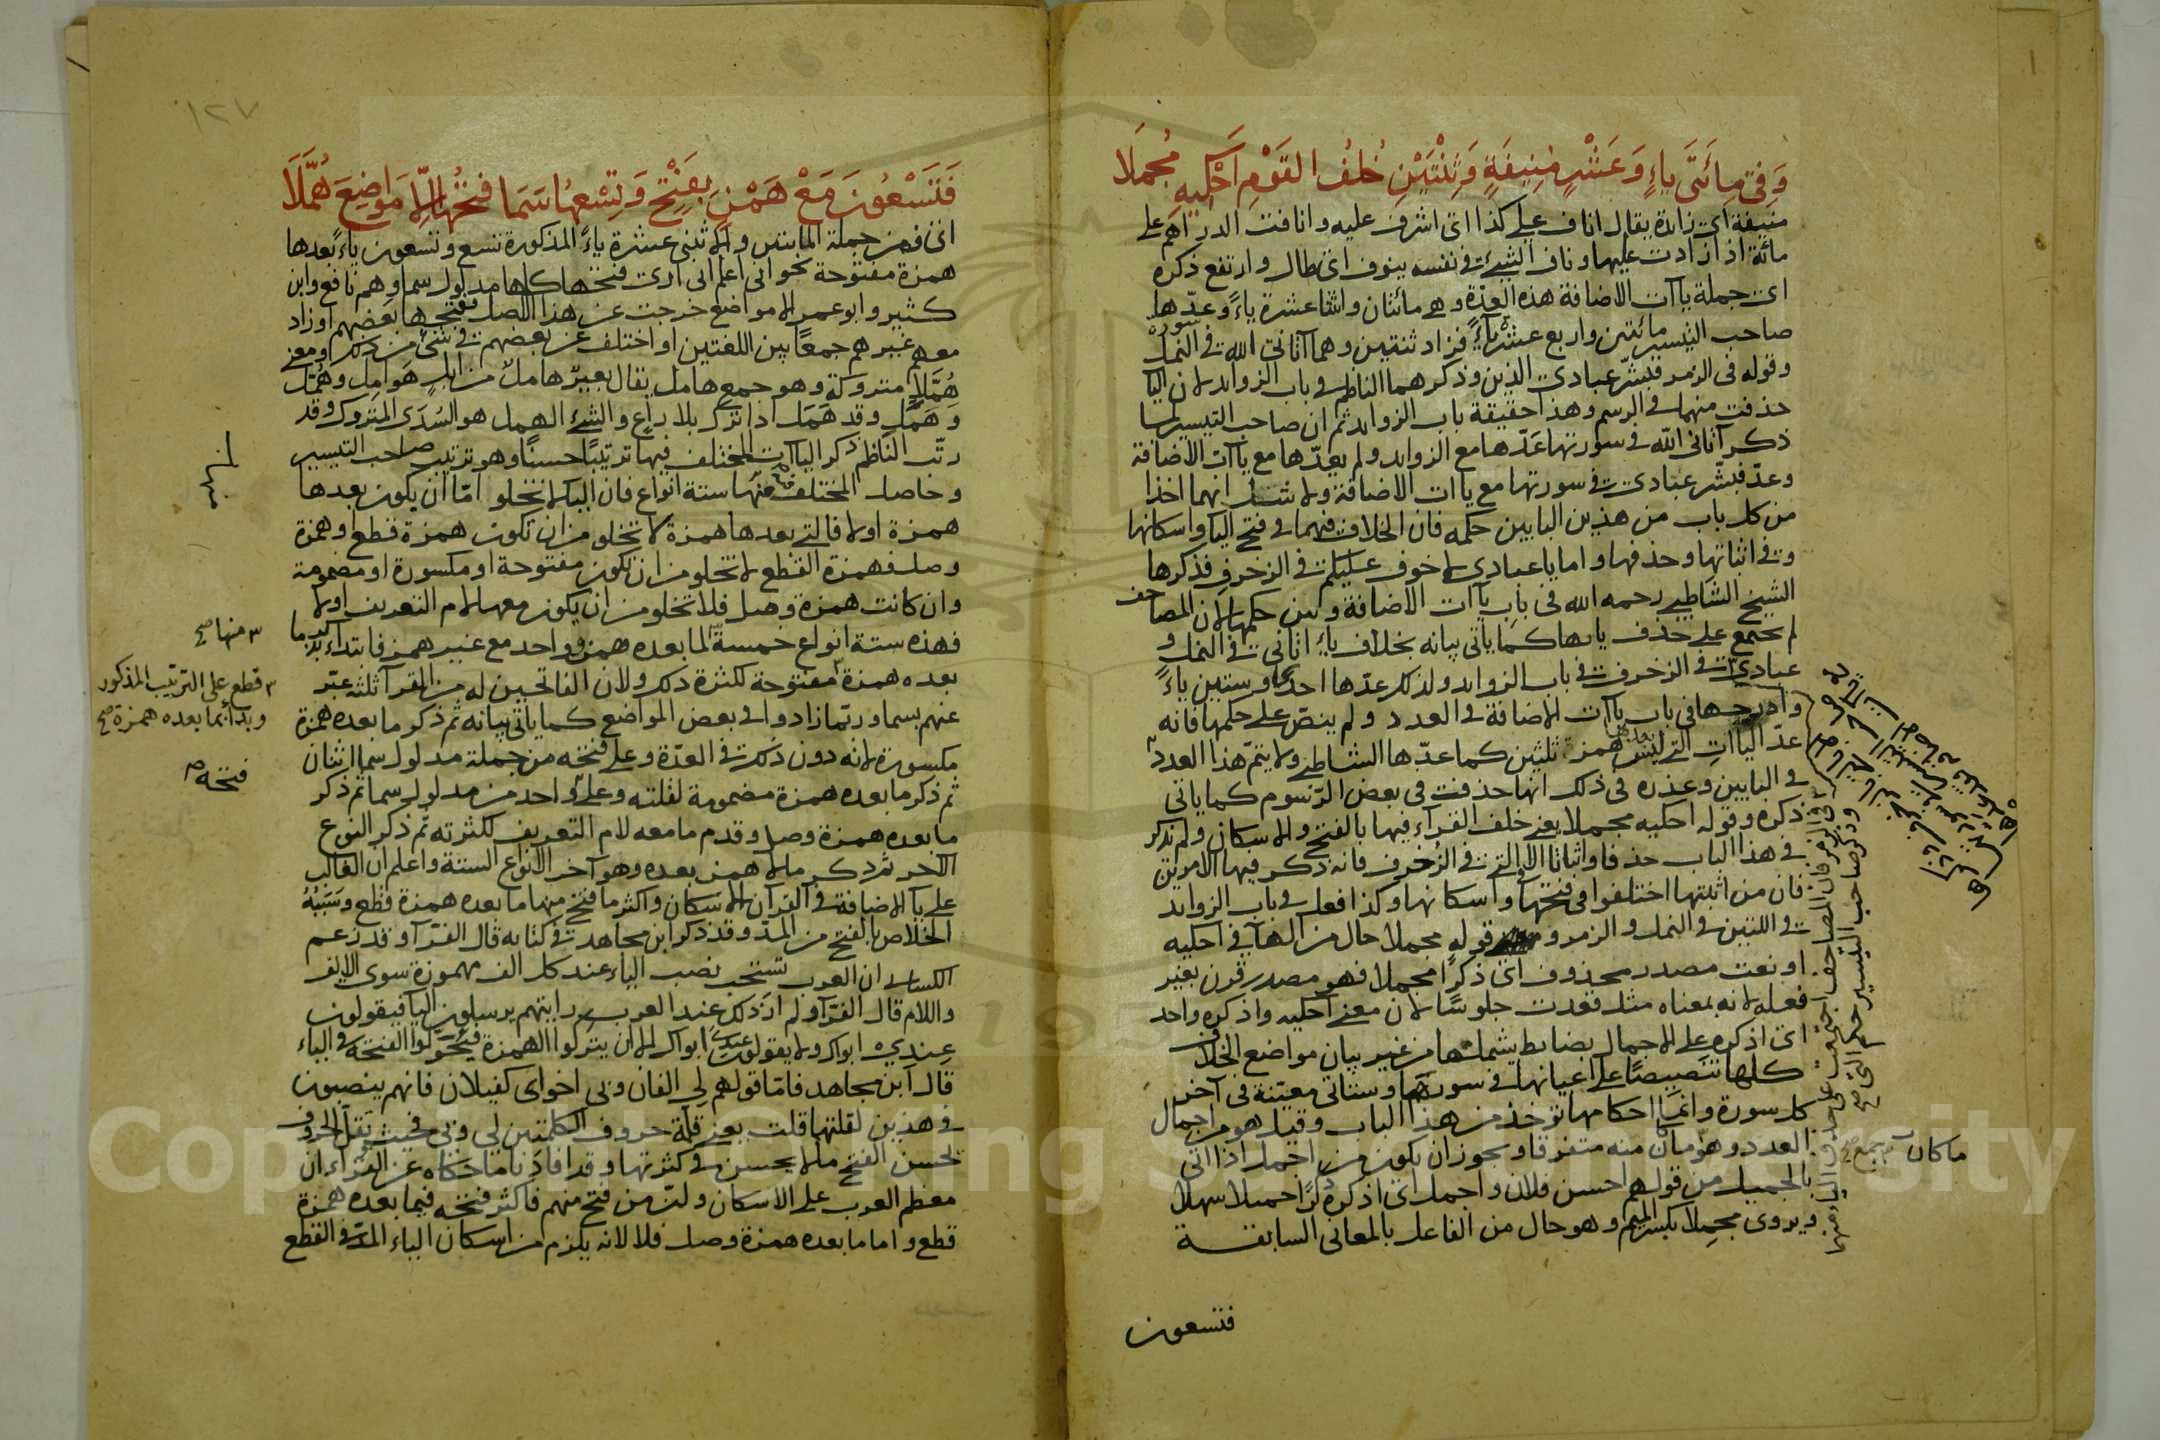 وَفِي مِائَتَيْ يَاءٍ وَعَشْرٍ مُنِيفَةٍ وَثِنْتَيْنِ خُلْفُ القَوْمِ أَحْكِيهِ مُجْمَلَا
منيفة اي زائدة يقال اناف على كذا اي اشرف عليه وانافت الدراهم على
مائة اذا زادت عليها وناف الشيء في نفسه ينوف اي طال وارتفع ذكره
اي جملة ياآت الاضافة هذه العدّة وهي مائتان واثنتا عشرة ياءً وعدّها
صاحب التيسير مائتين واربع عشرة ياءً فزاد ثنتين وهما آتاني الله في سورة النمل
وقوله في الزمر فبشّر عبادي الذين وذكرهما الناظم في باب الزوايد لان اليا
حذفت منهما في الرسم وهذا حقيقة باب الزوايد ثم ان صاحب التيسير لما
ذكر آتاني الله في سورتها عَدّها مع الزوايد ولم يعدّها مع ياآت الاضافة
وعدّ فبشّر عبادي في سورتها مع ياات الاضافة ولا شك انهما اخذا
من كل باب من هذين البابين حكمه فان الخلاف فيهما في فتح اليا واسكانها
وفي اثباتها وحذفها واما يا عبادي لا خوف عليكم في الزخرف فذكرها
الشيخ الشاطبي رحمه الله في باب ياآت الاضافة وبين حكمها لان المصاحف
لم تجتمع على حذف يائها كما ياتي بيانه بخلاف ياء اتاني في النمل و
عبادي في الزخرف في باب الزوايد ولذلك عدّها احدًا وستين ياءً
وادرجها في باب ياآت الاضافة في العدد ولم ينصّ على حكمها فانه
عدّ الياآت التي ليس بعدها همزة ثلثين كما عدّها الشاطبي ولا يتمّ هذا العدد
في البابين وعذره في ذلك انها حذفت في بعض الرّسوم كما ياتي
ذكره وقوله احكيه مجملا يعني خلف القراء فيها بالفتح والاسكان ولم يذكر
في هذا الباب حذفا واثباتا الا في التي في الزخرف فانه ذكر فيها الامرين
فان من اثبتها اختلفوا في فتحها واسكانها وكذا فعل في باب الزوايد
في اللتين في النمل والزمر و قوله مجملا حال من الهآ في احكيه
او نعت مصدر محذوف اي ذكرًا مجملا فهو مصدر قرن بغير
فعله لانه بمعناه مثل قعدت جلوسًا لان معنى احكيه واذكره واحد
اي اذكره على الاجمال بضابط يشملها من غير بيان مواضع الخلاف
كلها تنصيصًا على اعيانها في سورها وستاتي معيّنة في آخر
كل سورة وانما احكامها تؤخذ من هذا الباب وقيل هو من اجمال
العدد وهو ما كان منه متفرقا ويجوز ان يكون من اجمل اذا اتى
بالجميل من قولهم احسن فلان واجمل اي اذكره ذكرًا جميلا سهلا
ويروى مجمِلا بكسر الميم وهو حال من الفاعل بالمعاني السابقة
فتسعون
ما كان جمع صح
١٢٧
فَتِسْعُونَ مَعْ هَمْزٍ بِفَتْحٍ وَتِسْعُهَا سَمَا فَتْحُهَا إِلَّا مَوَاضِعَ هُمَّلَا
اي فمن جملة المايتين والاثنتي عشرة ياءً المذكورة تسع وتسعون ياءً بعدها
همزة مفتوحة نحو اني اعلم اني ارى فتحها كلها مدلول سما وهم نافع وابن
كثير وابو عمرو الا مواضع خرجت عن هذا الاصل ففتحها بعضهم او زاد
معهم غيرهم جمعًا بين اللغتين او اختلف عن بعضهم في شيء من ذلك ومعنى
هُمَّلا متروكة وهو جمع هامل يقال بعير هامل من ابل هَوامِل وهُمَّل
وهَمَل وقد هَمَل اذا ترك بلا راعٍ والشيء الهمل هو السُدَى المتروك وقد
رتّب الناظم ذكر الياآت المختلف فيها ترتيبًا حسنًا وهو ترتيب صاحب التيسير
وحاصل المختلف فيه منها ستة انواع فان اليا لا تخلو امّا ان يكون بعدها
همزة اولا فالتي بعدها همزة لا تخلو من ان تكون همزة قطع او همزة
وصل فهمزة القطع لا تخلو من ان تكون مفتوحة او مكسورة او مضمومة
وان كانت همزة وصل فلا تخلو من ان يكون معها لام التعريف اولا
فهذه ستة انواع خمسة لما بعده همز وواحد مع غير همز فابتدا بذكر ما
بعده همزة مفتوحة لكثرة ذلك ولان الفاتحين له من القرآ ثلثة عبّر
عنهم بسما وربّما زادوا في بعض المواضع كما ياتي بيانه ثم ذكر ما بعده همزة
مكسورة لانه دون ذلك في العدّة وعلى فتحه من جملة مدلول سما اثنان
ثم ذكر ما بعده همزة مضمومة لقلته وعلى واحد من مدلول سما ثم ذكر
ما بعده همزة وصل وقدم ما معه لام التعريف لكثرته ثم ذكر النوع
الاخر ثم ذكر ما لا همز بعده وهو آخر الانواع الستة واعلم ان الغالب
على يآ الاضافة في القرآن الاسكان واكثر ما فتح منها ما بعده همزة قطع وسَبَبُهُ
الخلاص بالفتح من المدّ وقد ذكر ابن مجاهد في كتابه قال الفرّآ وقد زعم
الكسائي ان العرب تستحب نصب الياء عند كل الف مهموزة سوى الالف
واللام قال الفرّآ ولم ار ذلك عند العرب رايتهم يرسلون اليا فيقولون
عندي ابوك ولا يقولون عنديَ ابوك الا ان يتركوا الهمزة فيحوّلوا الفتحة في الياء
قال ابن مجاهد فامّا قولهم لي الفان وبي اخواي كفيلان فانهم ينصبون
في هذين لقلتها قلت يعني قلة حروف الكلمتين لي وبي فحيث ثقل الحرف
لحسن الفتح ما لا يحسن في كثرتها وقد افادنا ما حكاه عن الفرّاء ان
معظم العرب على الاسكان ولتّ من فتح منهم فاكثر فتحه فيما بعده همزة
قطع واما ما بعده همزة وصل فلا لانه يلزم من اسكان الياء المدّ في القطع
منها صح
قطع على الترتيب المذكور
وبدا بما بعده همزة صح
فتحه صح
Copyright © King Saud University